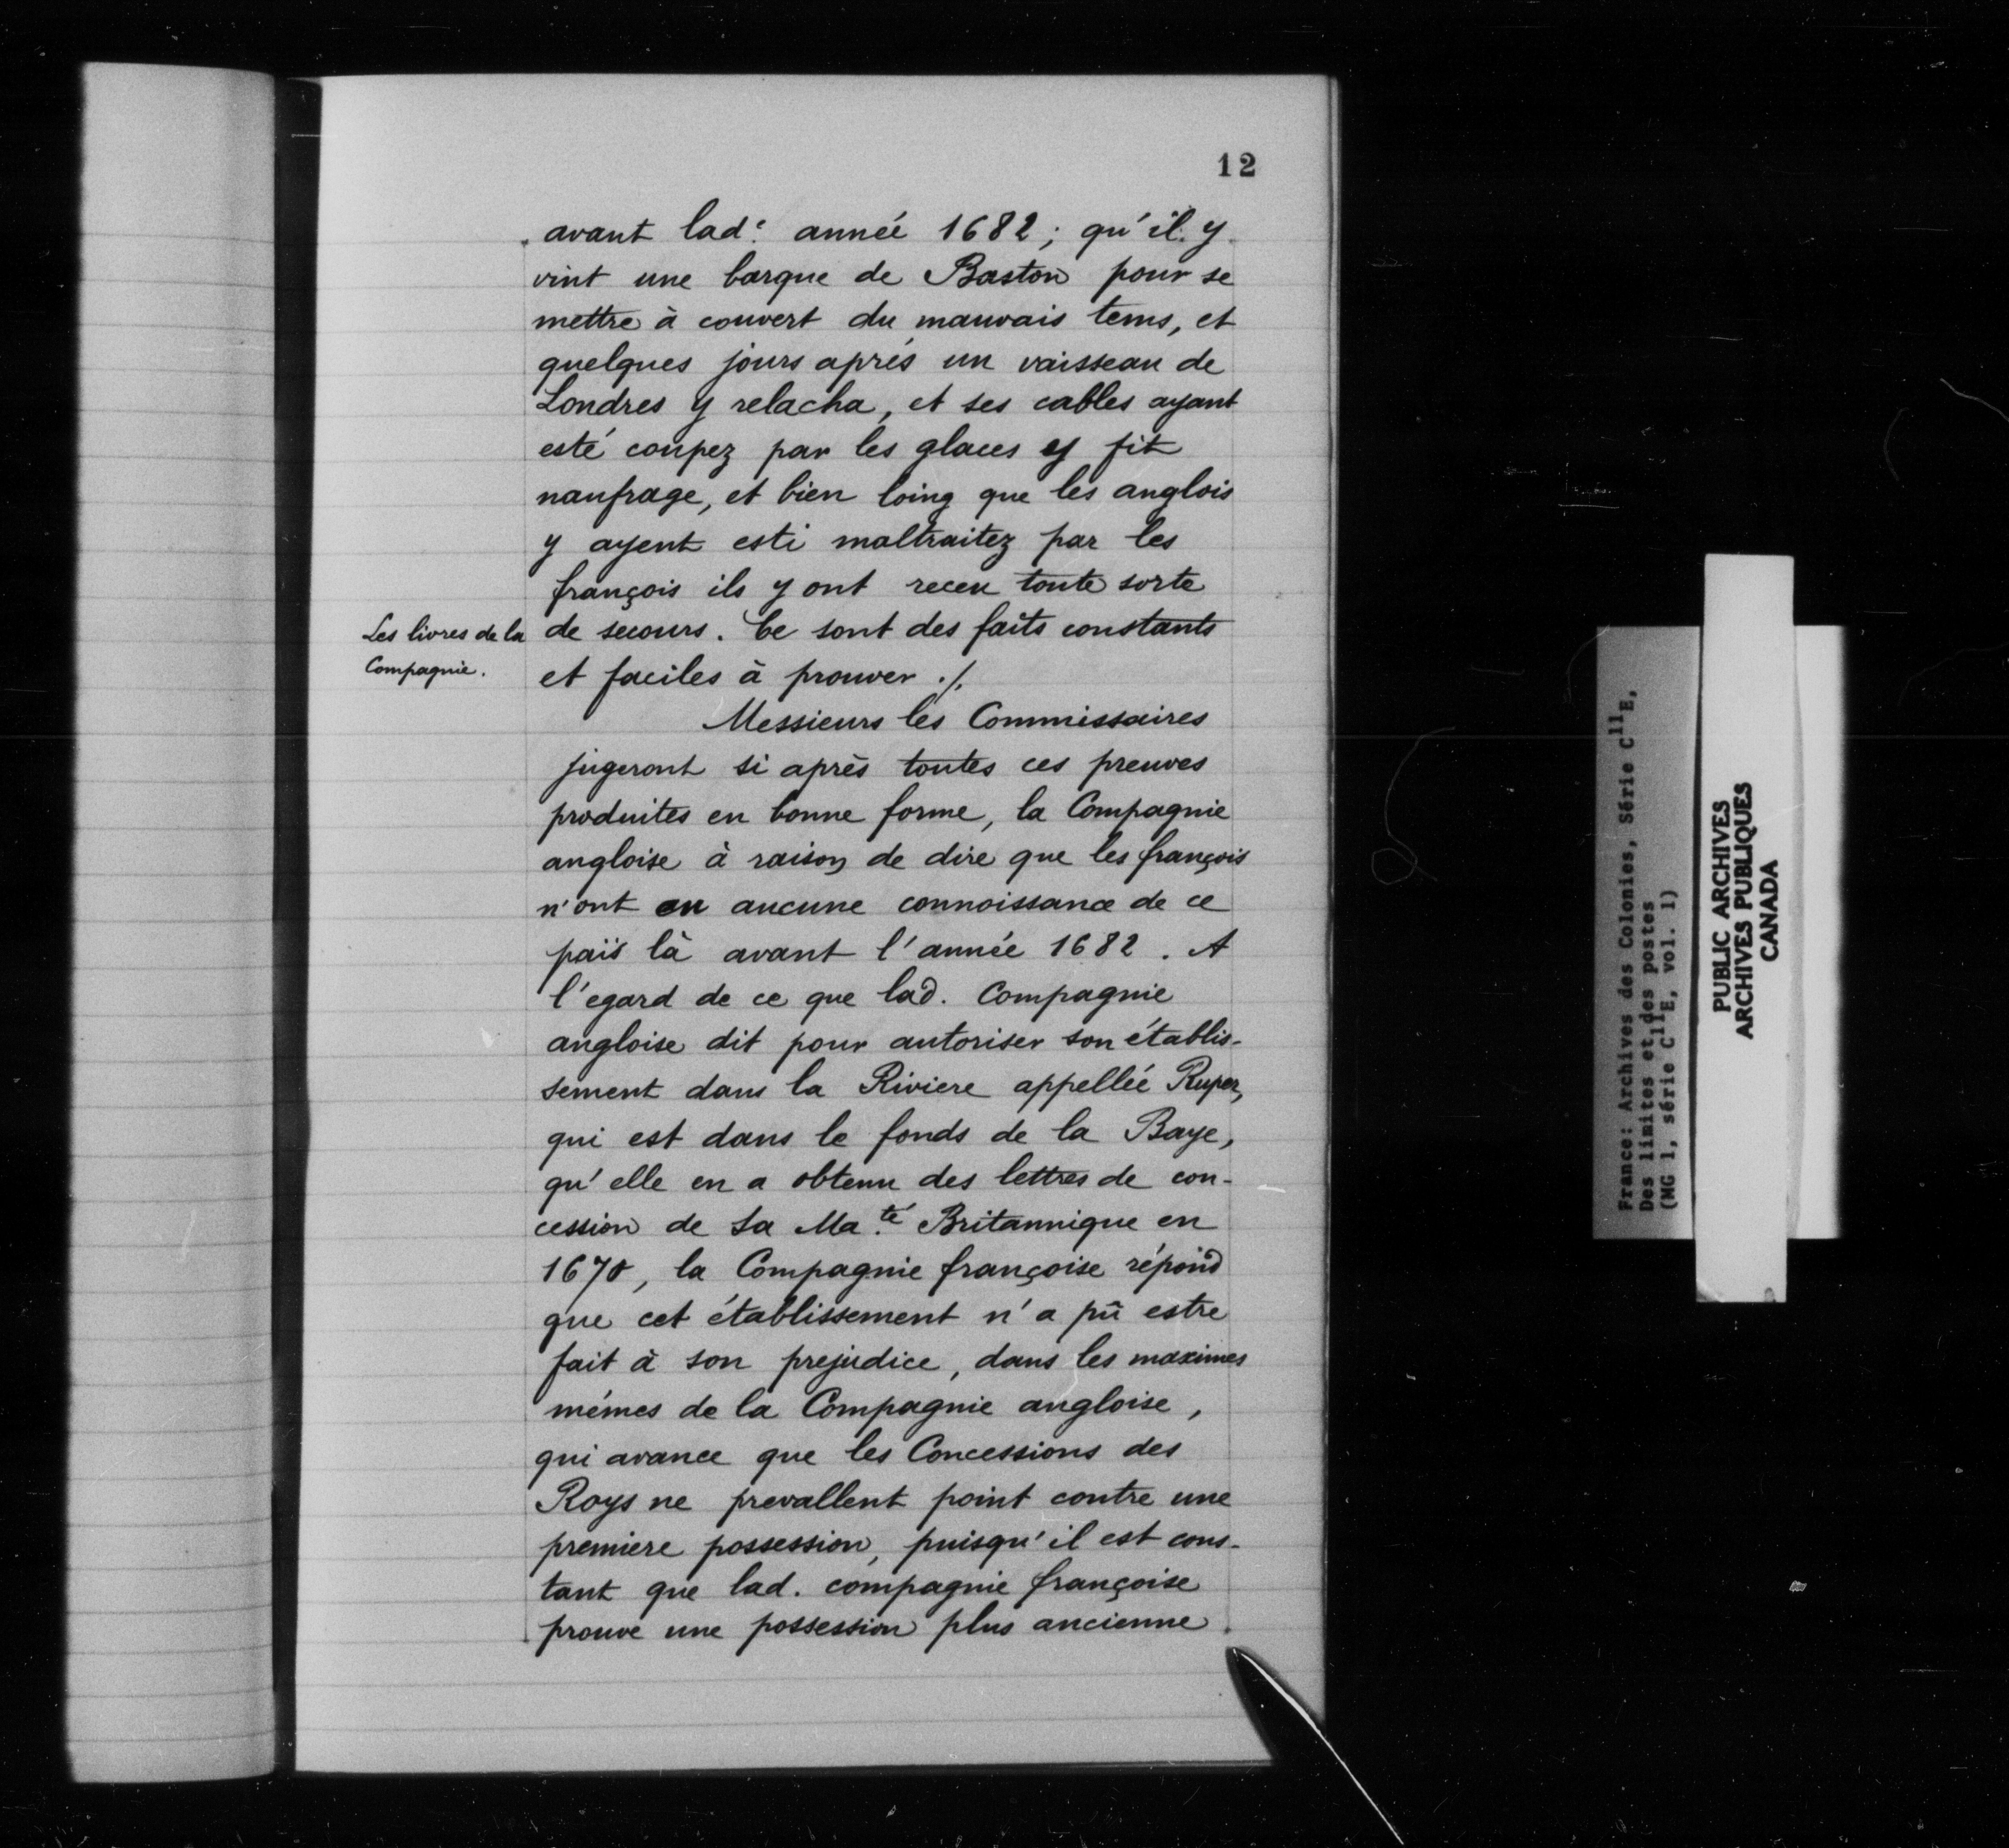 12
avant lad.e année 1682 ; qu'il y
vint une barque de Baston pour se
mettre à couvert du mauvais tems, et
quelques jours aprés un vaisseau de
Londres y relacha, et ses cables ayant
esté coupez par les glaces y fit
naufrage, et bien loing que les anglois
y ayent esti maltraitez par les
françois ils y ont receu toute sorte
Les livres de la
Compagnie.
de secours. Ce sont des faits constants
et faciles à prouver ./.
Messieurs les Commissaires
jugeront si après toutes ces preuves
produites en bonne forme, la Compagnie
angloise à raison de dire que les françois
n'ont eu aucune connoissance de ce
païs là avant l'année 1682. A
l'egard de ce que lad. Compagnie
angloise dit pour autoriser son établis-
sement dans la Riviere appellée Ruper,
qui est dans le fonds de la Baye,
qu'elle en a obtenu des lettres de con-
cession de Sa Ma.té Britannique en
1670, la Compagnie françoise répond
que cet établissement n'a pû estre
fait à son prejudice, dans les maximes
mémes de la Compagnie angloise,
qui avance que les Concessions des
Roys ne prevallent point contre une
premiere possession, puisqu'il est cons-
tant que lad. compagnie françoise
prouve une possession plus ancienne
France: Archives des Colonies, Série C11E,
Des limites et des postes
(MG 1, série C11E, vol. 1)
PUBLIC ARCHIVES
ARCHIVES PUBLIQUES
CANADA